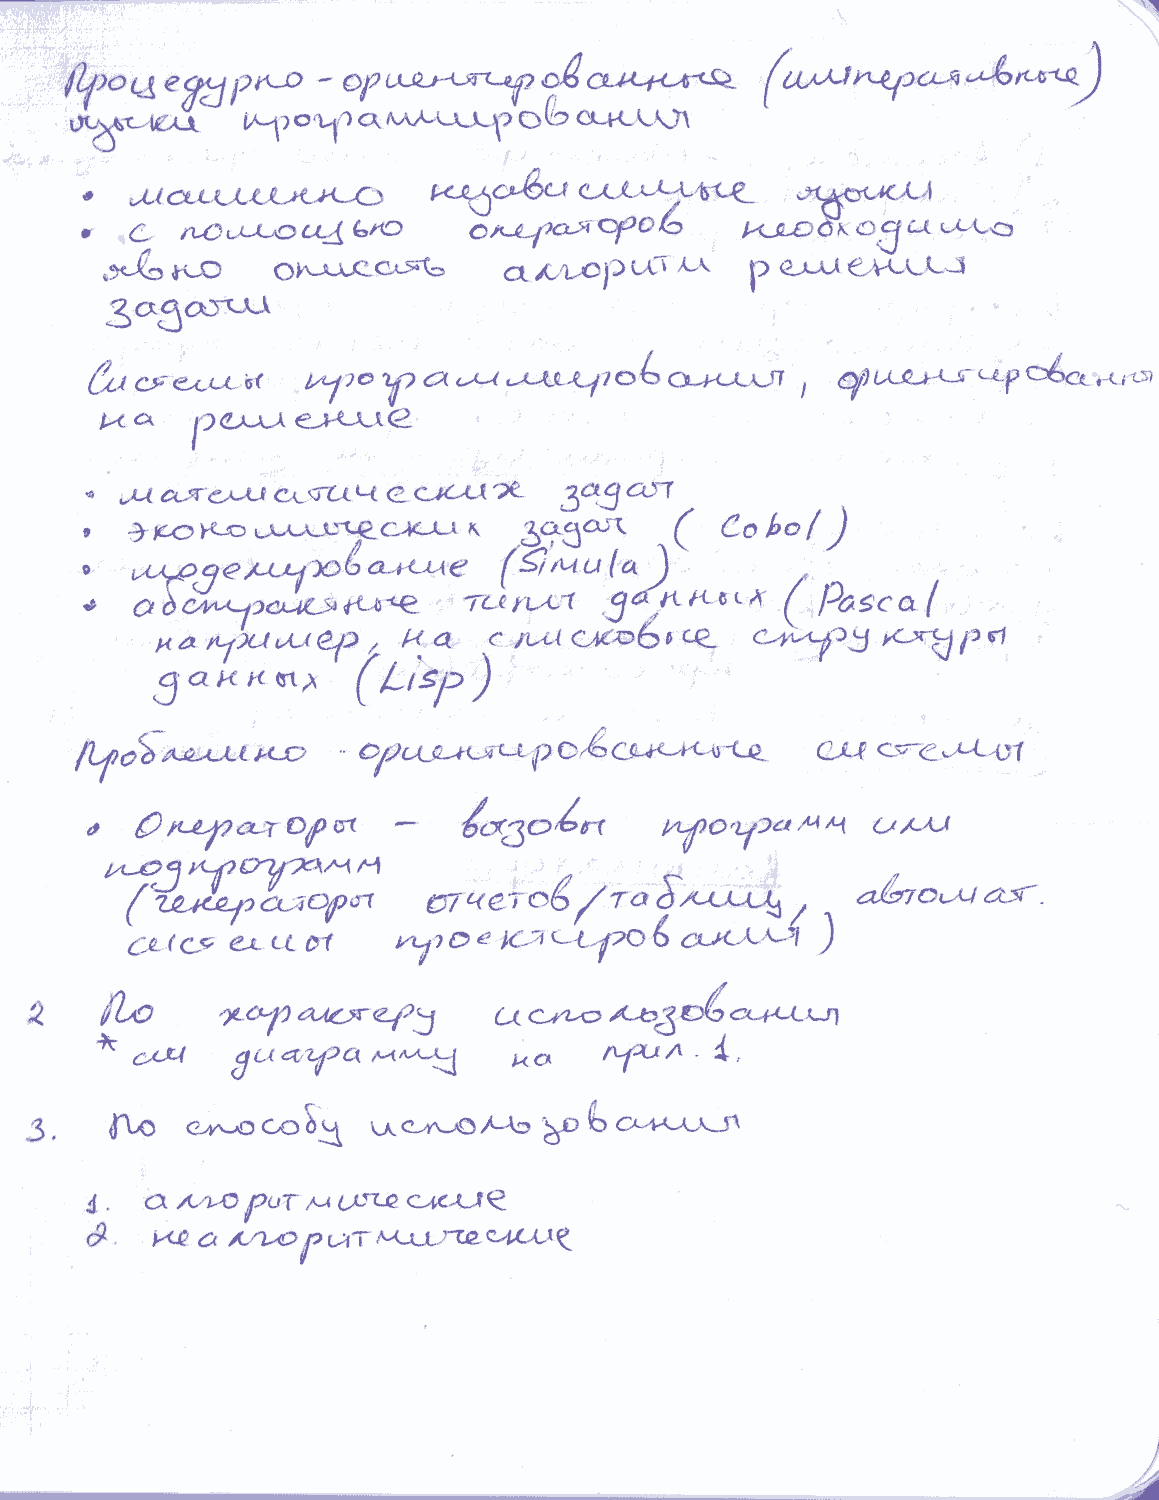 Процедурно-ориентированные (императивные)
языки программирования
• машинно независимые языки
• с помощью операторов необходимо
явно описать алгоритм решения
задачи
Системы программирования, ориентированн
на решение
• математических задач
• экономических задач (Cobol)
• моделирование (Simula)
• абстрактные типы данных (Pascal
например, на списковые структуры
данных (Lisp)
Проблемно-ориентированные системы
• Операторы – вызовы программ или
подпрограмм
(генераторы отчетов/таблиц, автомат.
системы проектирования)
2 По характеру использования
* см диаграмму на прил. 1.
3. По способу использования
1. алгоритмические
2. неалгоритмические